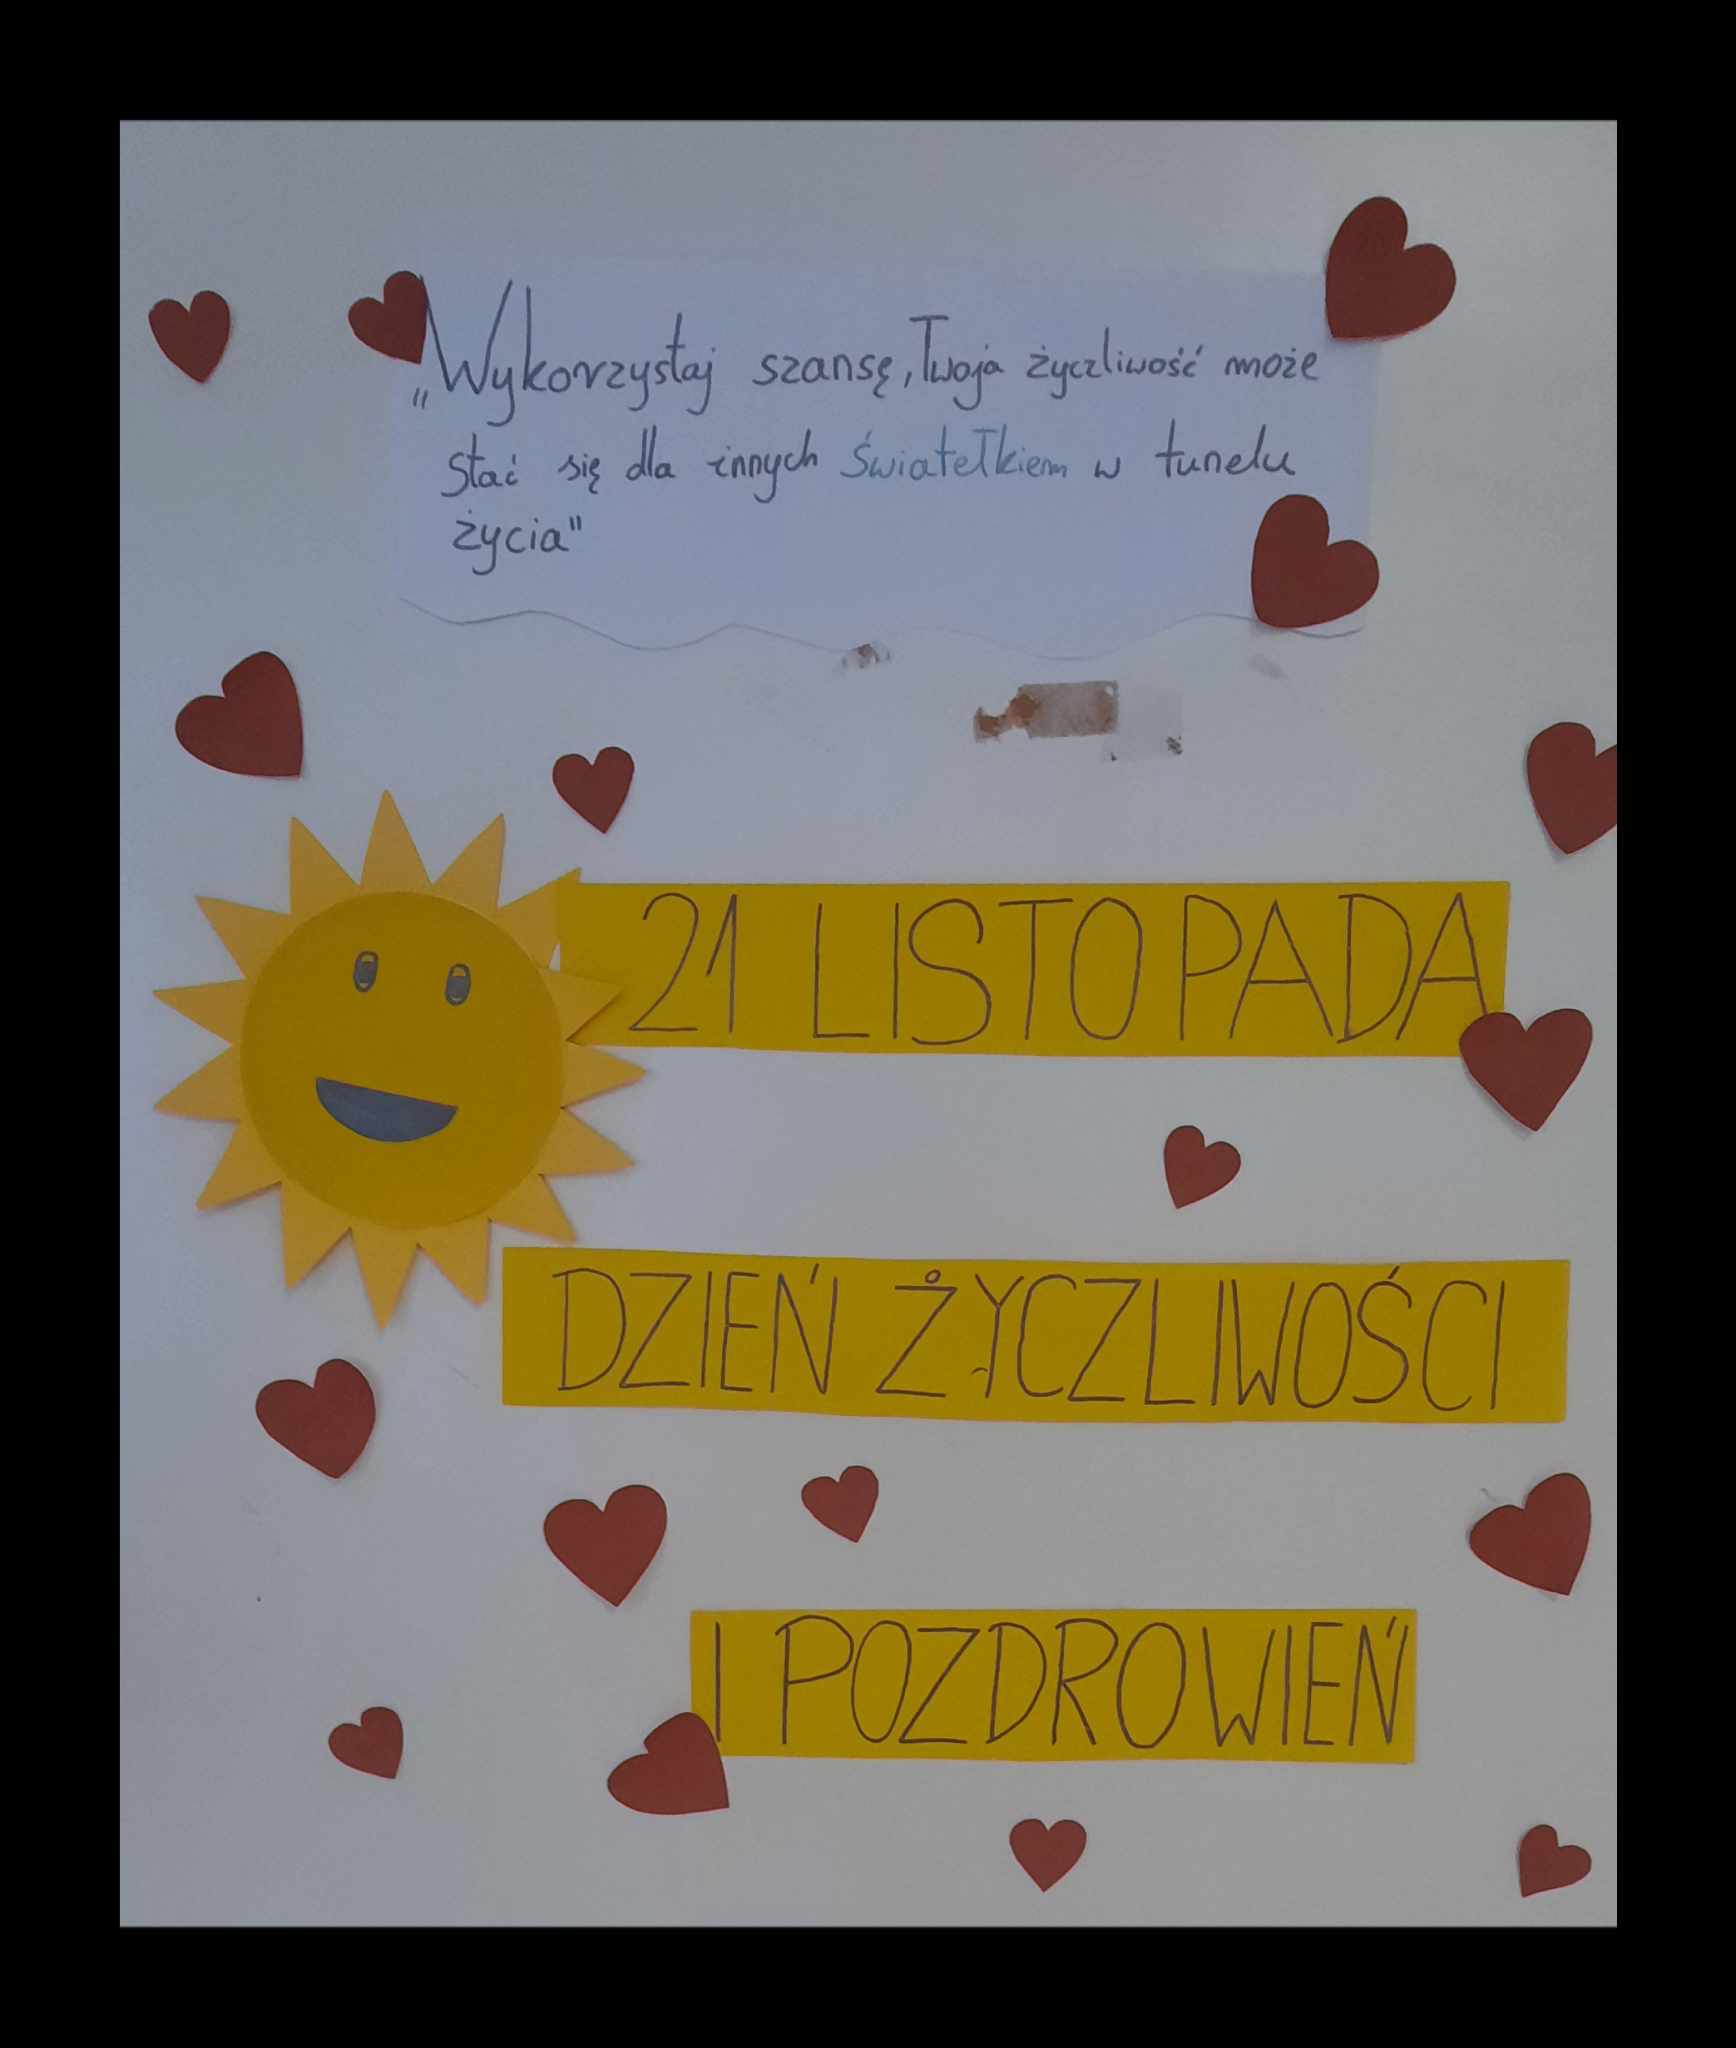 „Wykorzystaj szansę, Twoja życzliwość może
stać się dla innych światełkiem w tunelu
życia"
21 LISTOPADA
DZIEŃ ŻYCZLIWOŚCI
I POZDROWIEŃ